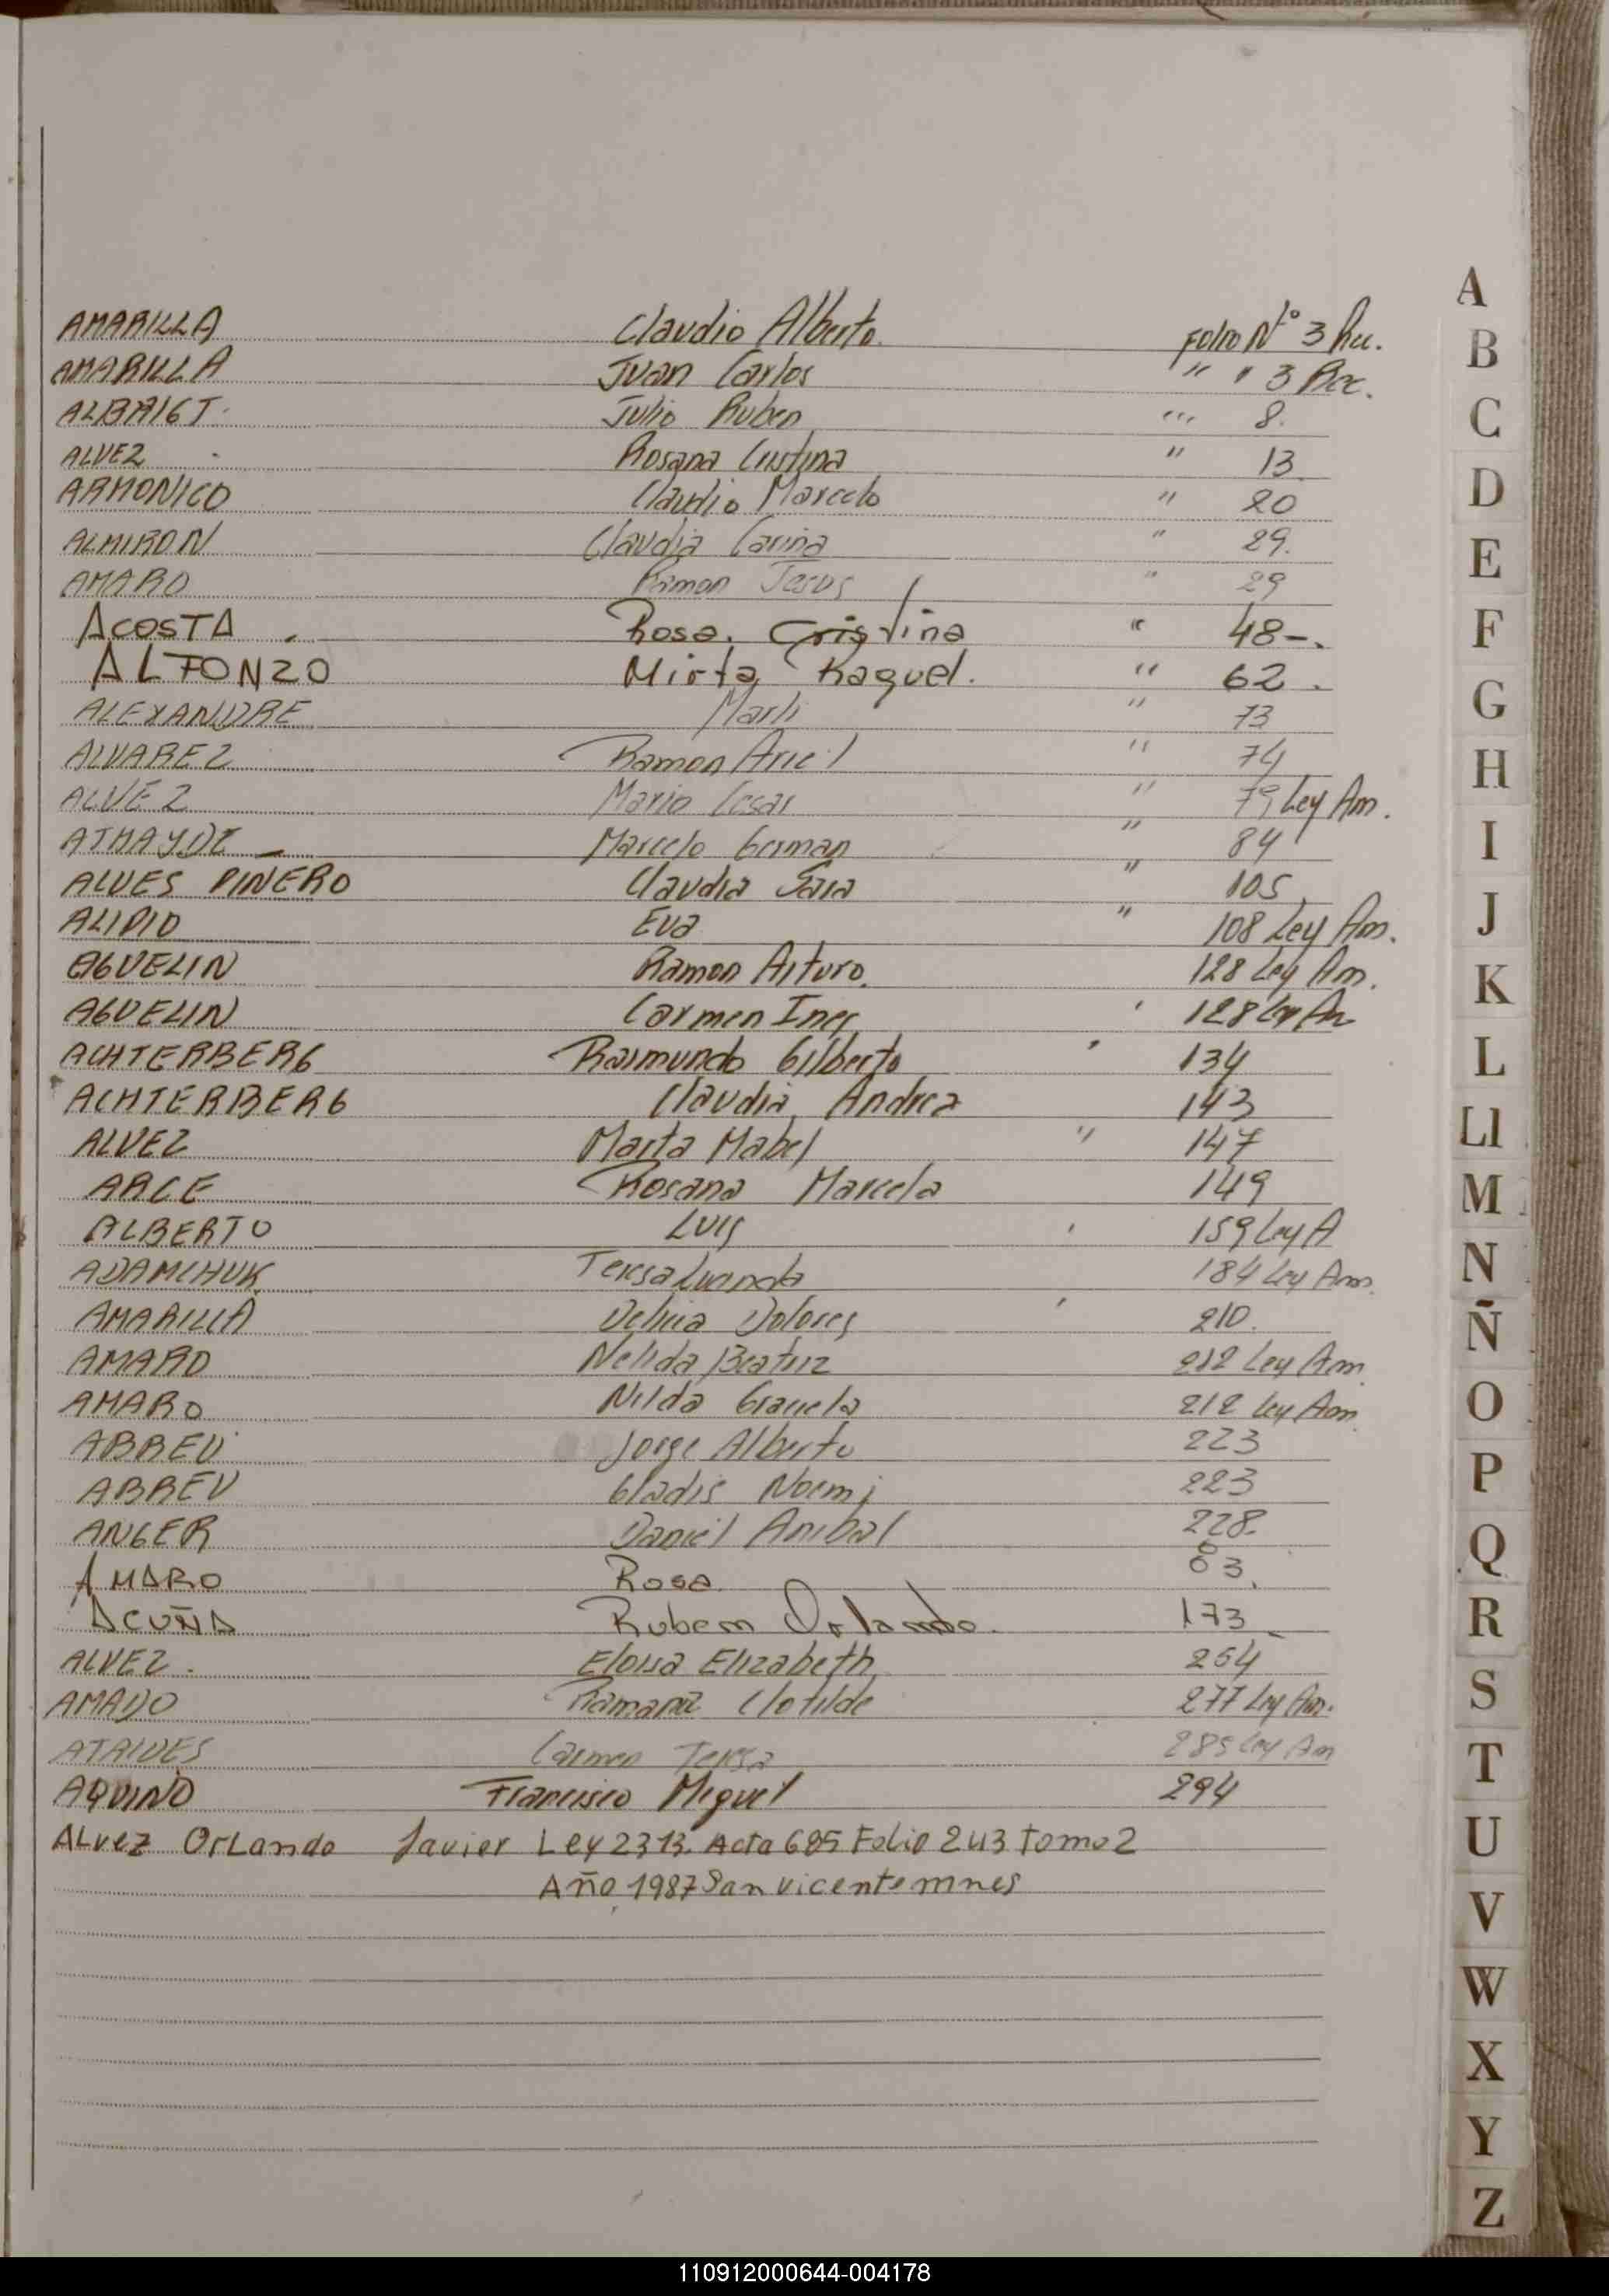 AMARILLA Claudio Alberto. Folio Nº 3 Rec.
AMARILLA Juan Carlos " " 3 Rec.
ALBRIGT. Julio Ruben " 8.
ALVEZ Rosana Cristina " 13
ARMONICO Claudio Marcelo " 20
ALMIRON Claudia Carina " 29.
AMARO Ramon Jesus " 29
ACOSTA . Rosa. Cristina " 48-.
ALFONZO Mirta Raquel. " 62 .
ALEXANDRE Marli " 73
ALVAREZ Ramon Ariel " 74
ALVEZ Mario Cesar " 79 Ley Am.
ATHAYDE - Marcelo German " 84
ALVES PINERO Claudia Sara " 105
ALIPIO Eva " 108 Ley Am.
AGUELIN Ramon Arturo. 128 Ley Am.
AGUELIN Carmen Ines ' 128 Ley Am
ACHTERBERG Raimundo Gilberto " 134
ACHTERBERG Claudia Andrea 143
ALVEZ Marta Mabel " 147
ARCE Rosana Marcela 149
ALBERTO Luis ' 159 Ley A
ADAMCHUK Teresa 184 Ley Am.
AMARILLA Delicia Dolores ' 210.
AMARO Nelida Beatriz 212 Ley Am.
AMARO Nilda Graciela 212 Ley Am
ABREU Jorge Alberto 223
ABREU Gladis Noemi 223
ANGER Daniel Anibal 228.
AMARO Rosa 63.
ACUÑA Ruben Orlando. 173
ALVEZ . Eloisa Elizabeth 264
AMADO Ramana Clotilde 277 Ley Am.
ATAIDES Carmen Teresa 285 Ley Am
AQUINO Francisco Miguel 294
ALvez OrLando Javier Ley 2313. Acta 685 Folio 243 tomo 2
Año 1987 San vicente mnes
A
B
C
D
E
F
G
H
I
J
K
L
Ll
M
N
Ñ
O
P
Q
R
S
T
U
V
W
X
Y
Z
110912000644-004178